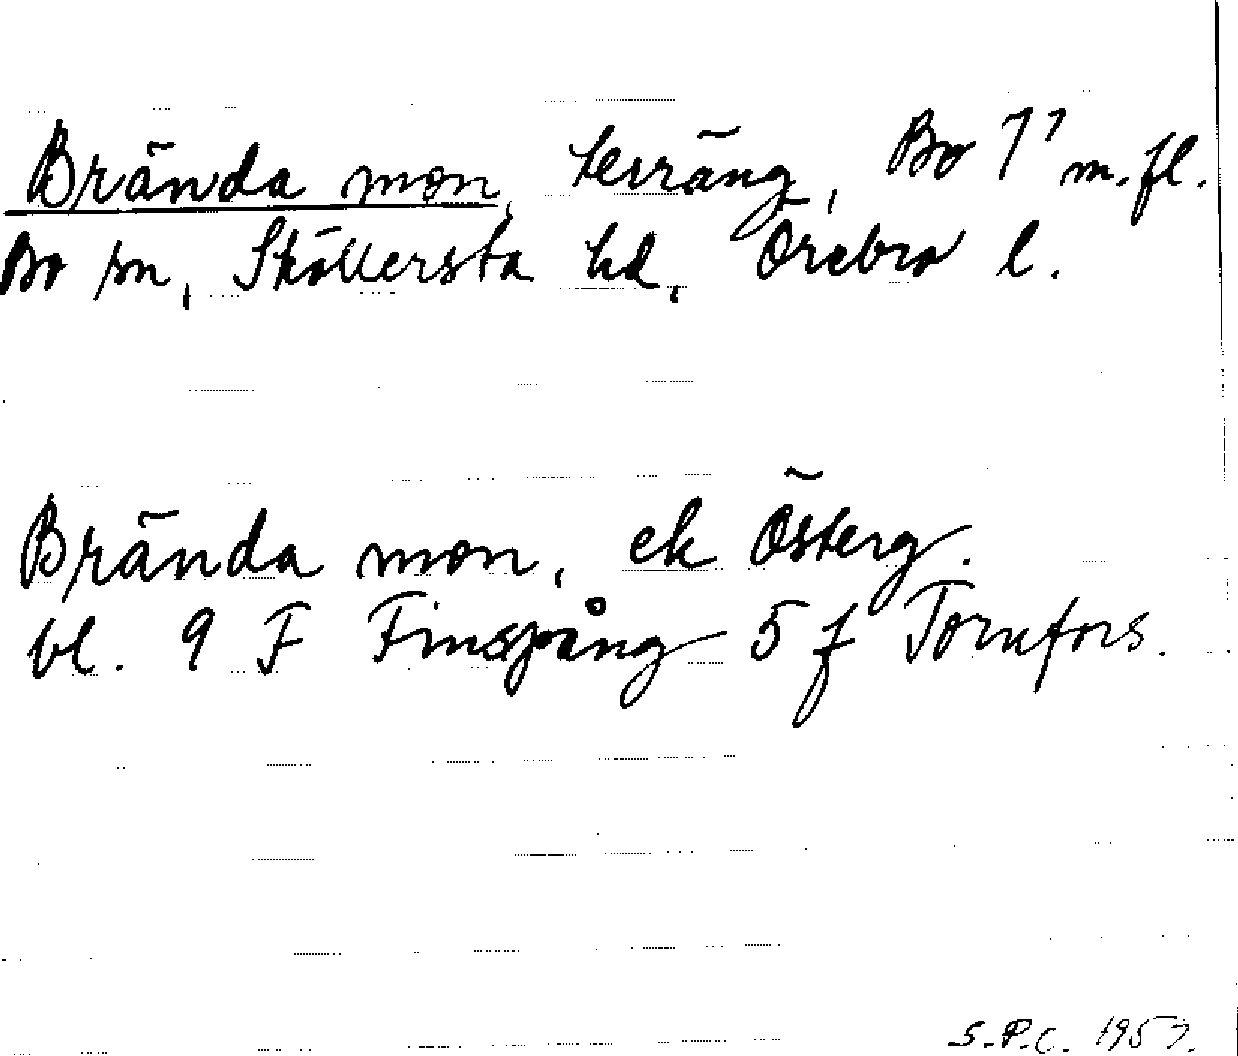 Brända mon, terräng, Bo 7⁷ m.fl.
Bo sn, Sköllersta hd, Örebro l.
Brända mon, ek Österg.
bl. 9 F Finspång 5 f Tornfors.
S.P.C. 1957.